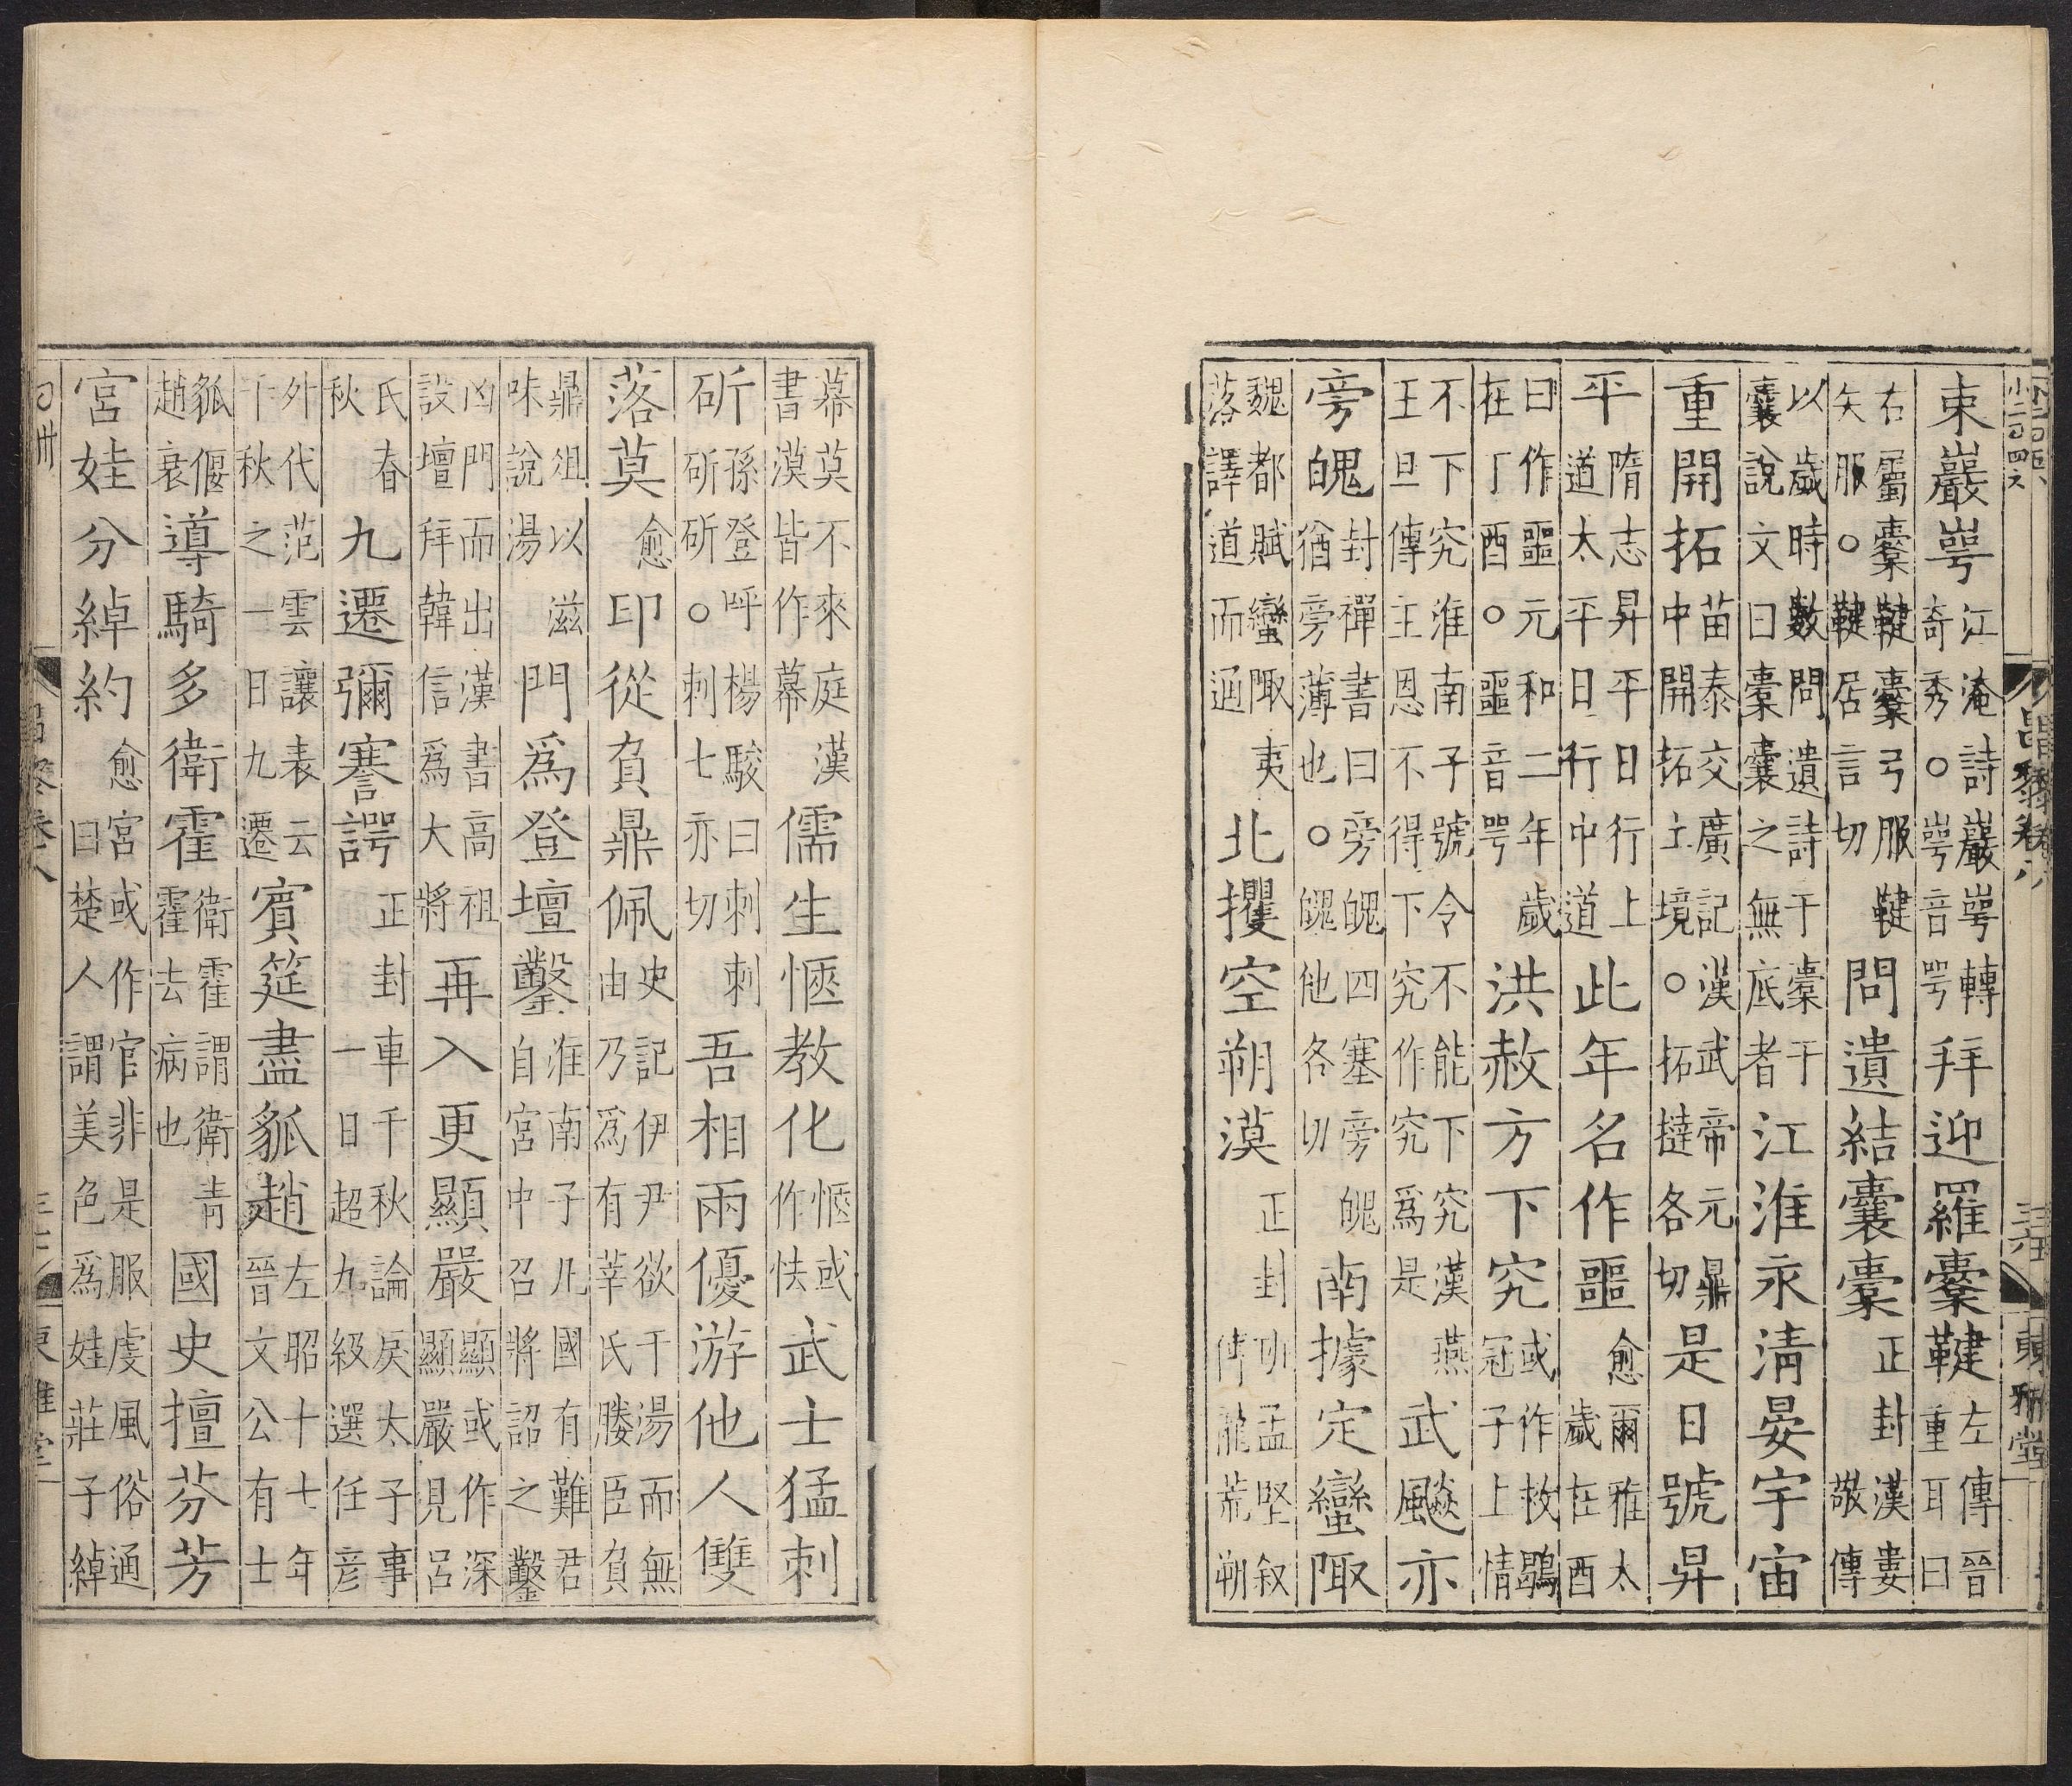 小二百四六
昌黎卷八
三六
東雅堂
束巖㟧江淹詩巖㟧轉奇秀○㟧音咢拜迎羅櫜鞬左傳晉重耳曰
右屬櫜鞬櫜弓服鞬矢服○鞬居言切問遺結囊橐正封漢婁敬傳
以歲時數問遺詩于橐于囊說文曰橐囊之無底者江淮永清晏宇宙
重開拓苗泰交廣記漢武帝元鼎中開拓土境○拓撻各切是日號昇
平隋志昇平日行上道太平日行中道此年名作噩愈爾雅太歲在酉
曰作噩元和二年歲在丁酉○噩音咢洪赦方下究或作救鶡冠子上情
不下究淮南子號令不能下究漢燕王旦傳主恩不得下究作究爲是武飈亦
旁魄封禪書曰旁魄四塞旁魄猶旁薄也○魄他各切南據定蠻陬
魏都賦蠻陬夷落譯道而通北攫空朔漠正封孟堅叙傳龍荒朔
幕莫不來庭漢書漠皆作幕儒生愜教化愜或作怯武士猛刺
斫孫登呼楊駿曰刺刺斫斫○刺七亦切吾相兩優游他人雙
落莫愈印從負鼎佩史記伊尹欲干湯而無由乃爲有莘氏媵臣負
鼎俎以滋味說湯門爲登壇鑿淮南子凡國有難君自宮中召將詔之鑿
凶門而出漢書高祖設壇拜韓信爲大將再入更顯嚴顯或作深顯嚴見呂
氏春秋九遷彌謇諤正封車千秋論戾太子事一日超九級選任彥
外代范雲讓表云千秋之一日九遷賓筵盡狐趙左昭十七年晉文公有士
狐偃趙衰導騎多衛霍衛霍謂衛青霍去病也國史擅芬芳
宮娃分綽約愈宮或作官非是服虔風俗通曰楚人謂美色爲娃莊子綽